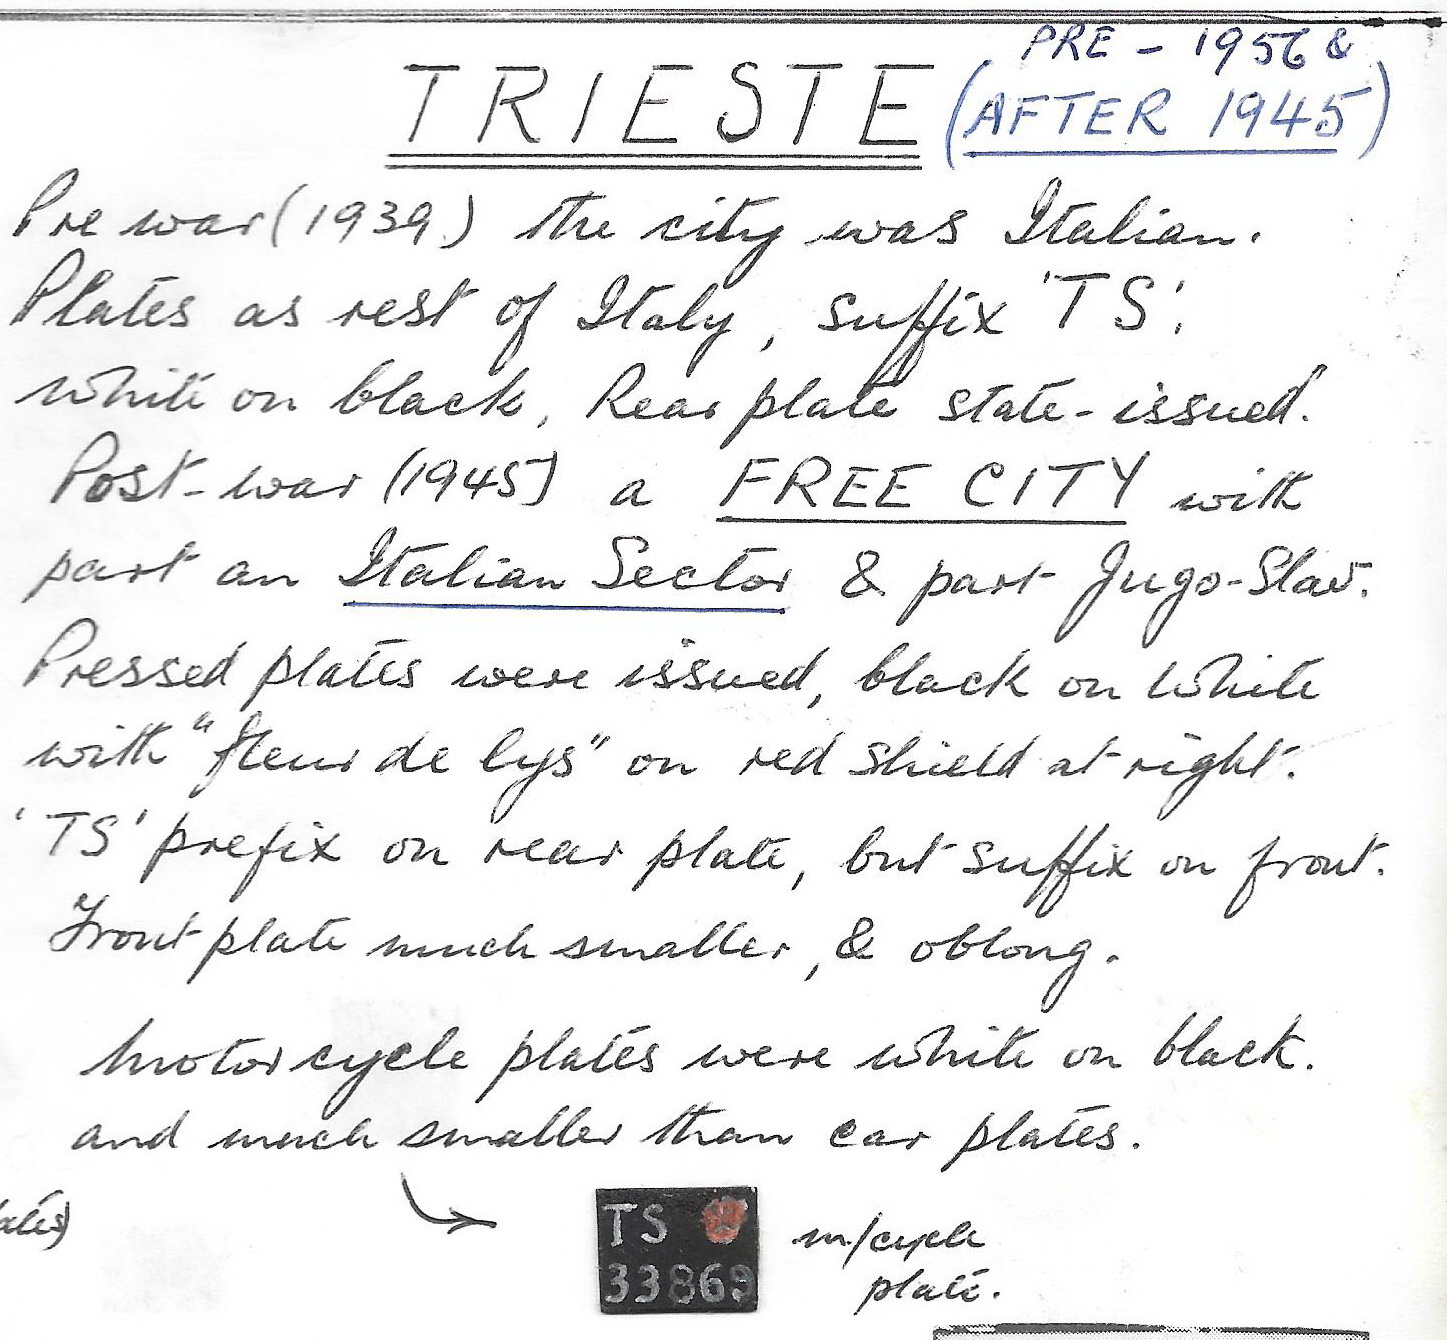 PRE - 1956 &
TRIESTE (AFTER 1945)
Pre war (1939) the city was Italian.
Plates as rest of Italy, suffix 'TS';
white on black, Rear plate state-issued.
Post-war (1945) a FREE CITY with
part an Italian Sector & part Jugo-Slav.
Pressed plates were issued, black on white
with "fleur de lys" on red shield at right.
'TS' prefix on rear plate, but suffix on front.
Front plate much smaller, & oblong.
Motorcycle plates were white on black.
and much smaller than car plates.
TS
33869
m/cycle
plate.